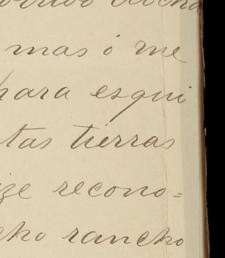 mas ó me
para esqui
tas tierras
ize recono=
cho rancho